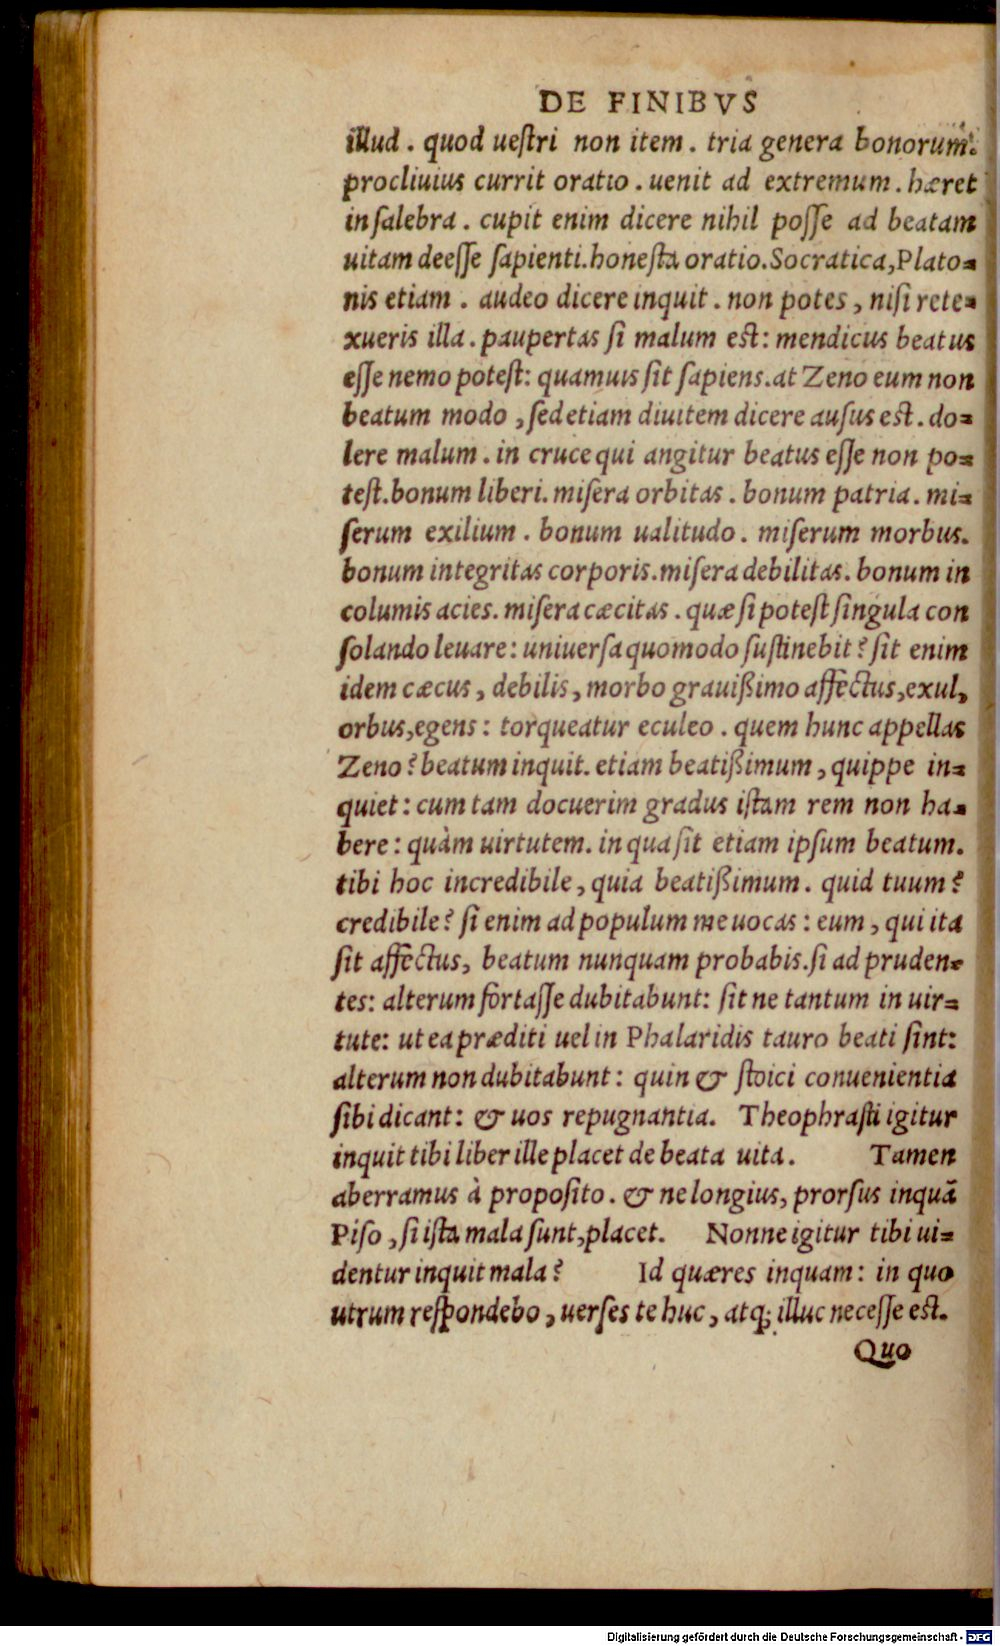 DE FINIBVS
illud . quod ueſtri non item . tria genera bonorum:
procliuius currit oratio . uenit ad extremum . hæret
in ſalebra . cupit enim dicere nihil poſſe ad beatam
uitam deeſſe ſapienti. honeſta oratio. Socratica, Plato=
nis etiam . audeo dicere inquit . non potes , niſi rete=
xueris illa . paupertas ſi malum eſt : mendicus beatus
eſſe nemo poteſt : quamuis ſit ſapiens. at Zeno eum non
beatum modo , ſed etiam diuitem dicere auſus eſt . do=
lere malum . in cruce qui angitur beatus eſſe non po=
teſt. bonum liberi. miſera orbitas . bonum patria . mi=
ſerum exilium . bonum ualitudo . miſerum morbus.
bonum integritas corporis. miſera debilitas. bonum in
columis acies. miſera cæcitas . quæ ſi poteſt ſingula con
ſolando leuare : uniuerſa quomodo ſuſtinebit ? ſit enim
idem cæcus , debilis , morbo grauißimo affectus, exul,
orbus, egens : torqueatur eculeo . quem hunc appellas
Zeno ? beatum inquit. etiam beatißimum , quippe in=
quiet : cum tam docuerim gradus iſtam rem non ha=
bere : quàm uirtutem. in qua ſit etiam ipſum beatum.
tibi hoc incredibile , quia beatißimum . quid tuum ?
credibile ? ſi enim ad populum me uocas : eum , qui ita
ſit affectus, beatum nunquam probabis. ſi ad pruden=
tes: alterum fortaſſe dubitabunt: ſit ne tantum in uir=
tute: ut ea præditi uel in Phalaridis tauro beati ſint:
alterum non dubitabunt : quin & ſtoici conuenientia
ſibi dicant : & uos repugnantia. Theophraſti igitur
inquit tibi liber ille placet de beata uita . Tamen
aberramus à propoſito . & ne longius, prorſus inquã
Piſo , ſi iſta mala ſunt, placet. Nonne igitur tibi ui=
dentur inquit mala ? Id quæres inquam : in quo
utrum reſpondebo , uerſes te huc , atq; illuc neceſſe eſt.
Quo
Digitalisierung gefördert durch die Deutsche Forschungsgemeinschaft - DFG